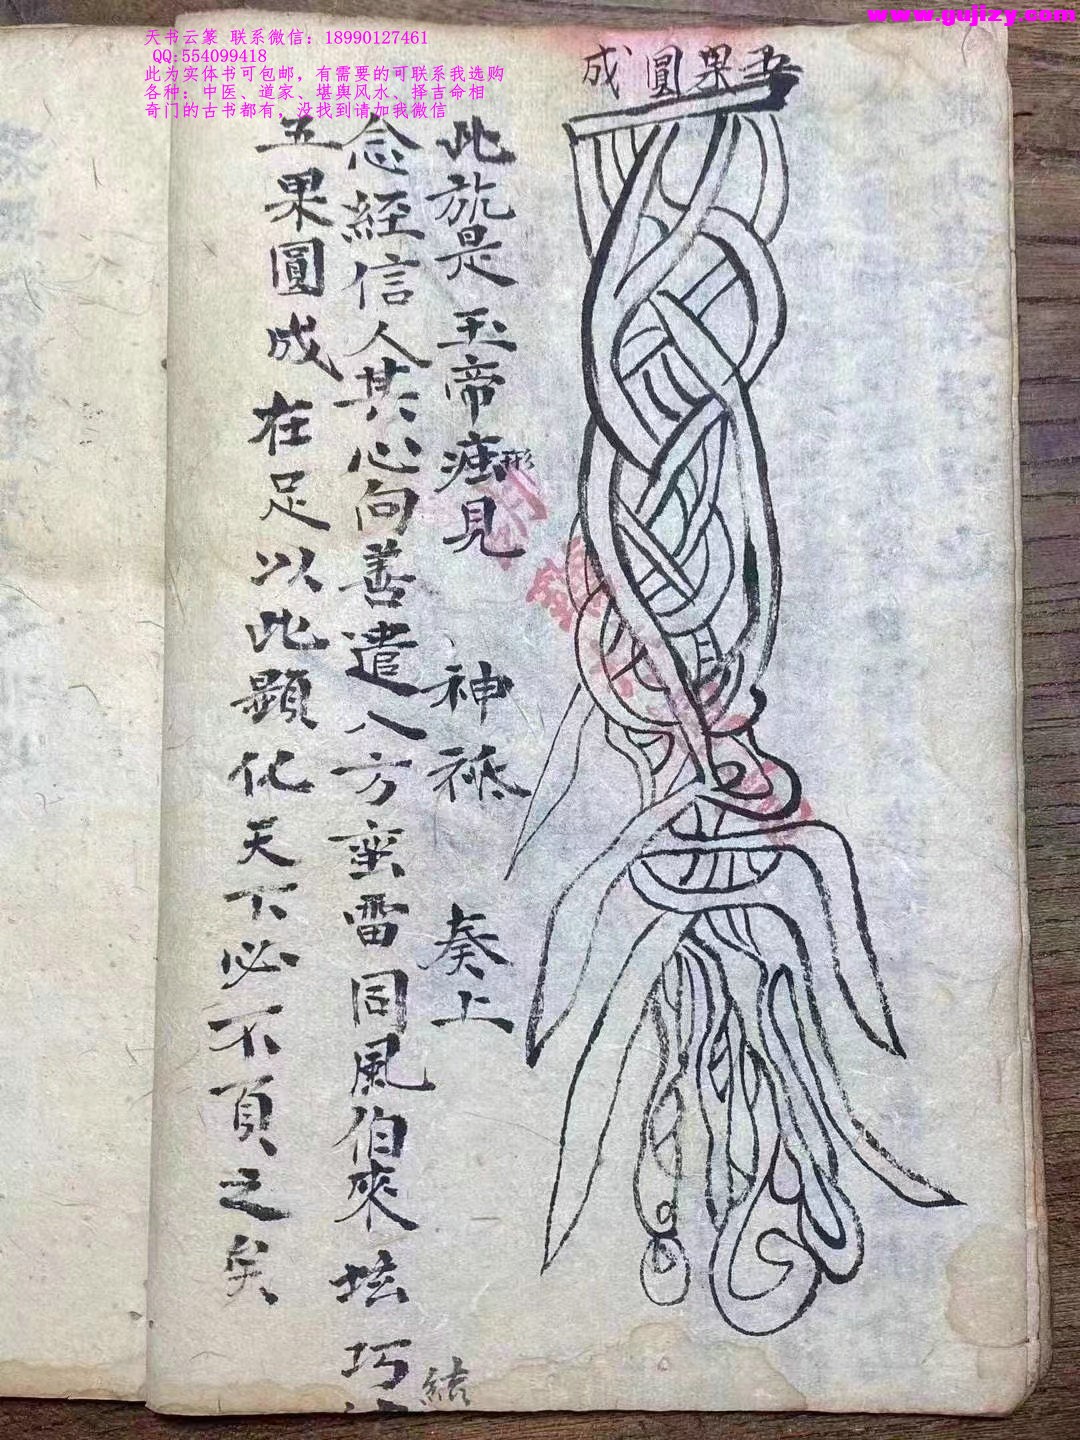 www.gujizy.com
天书云篆 联系微信：18990127461
QQ:554099418
此为实体书可包邮，有需要的可联系我选购
各种：中医、道家、堪舆风水、择吉命相
奇门的古书都有，没找到请加我微信
果圓成
此旂是玉帝 見 神祗 奏上
形
念經信人其心向善遣八方蛮雷同風伯來坛巧
結
五果圓成在足以此顕化天下必不頁之矣